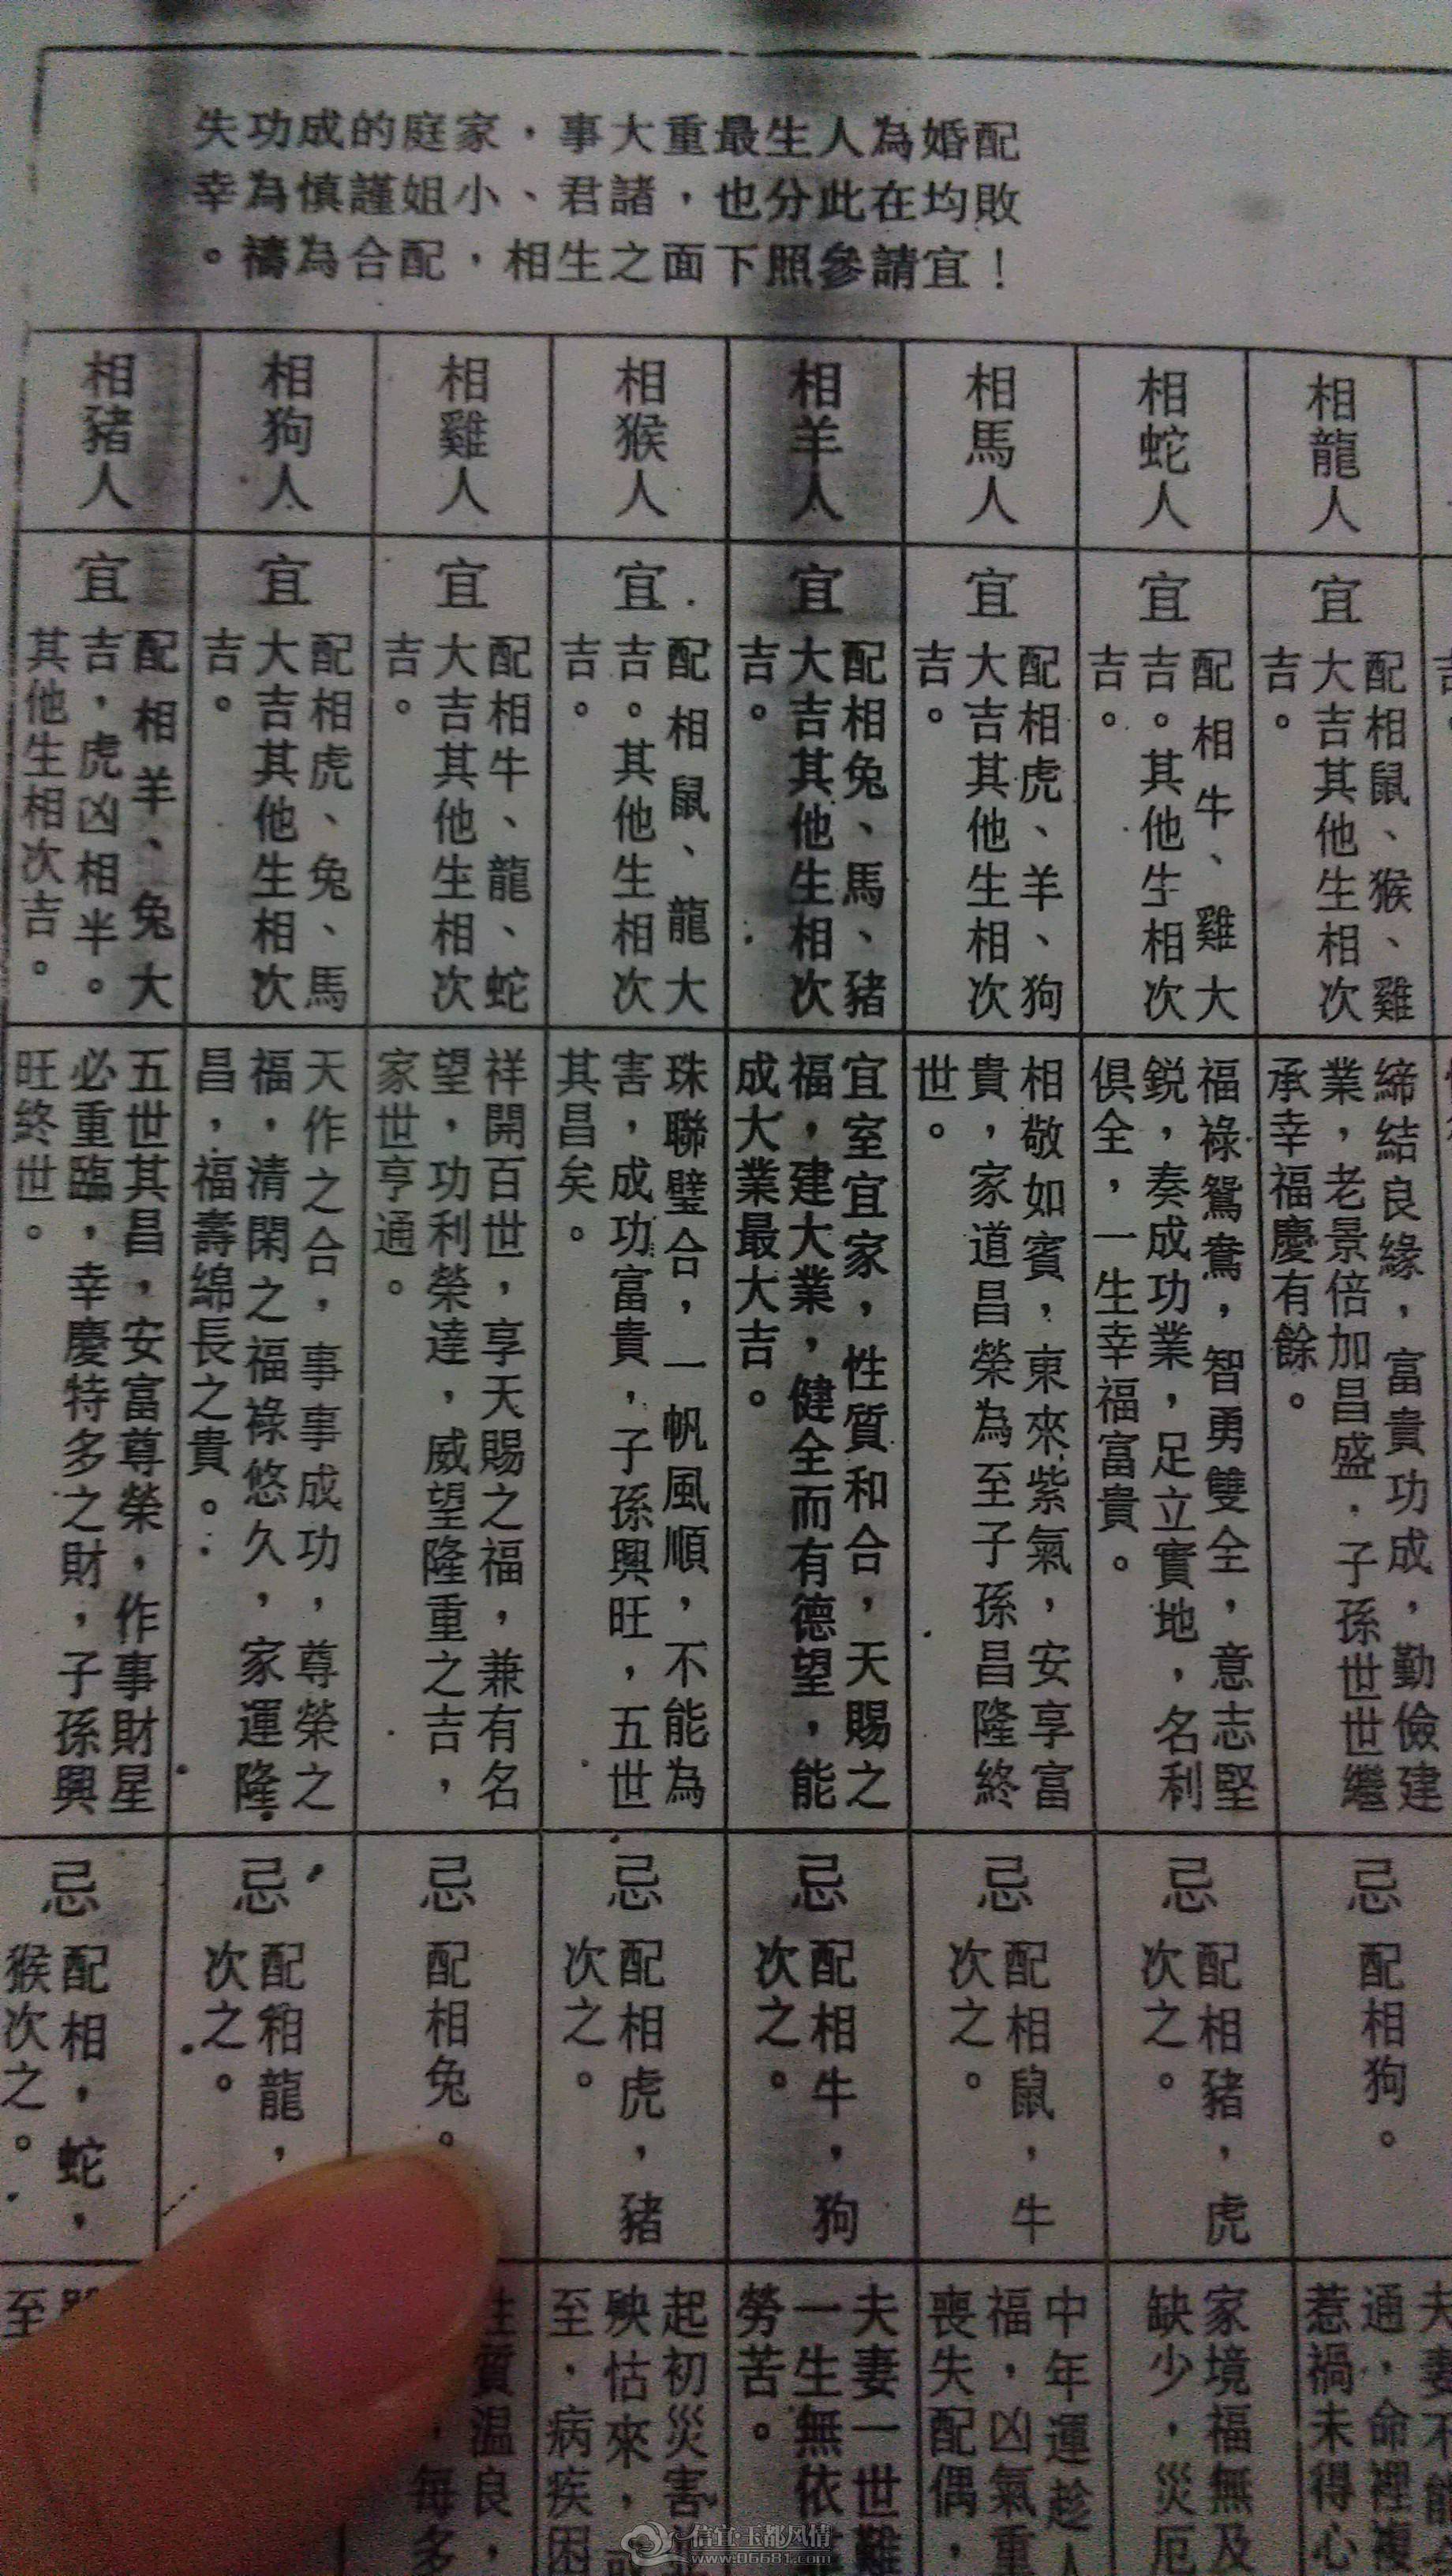 配婚為人生最重大事，家庭的成功失
敗均在此分也，諸君、小姐謹慎為幸
！宜請參照下面之生相，配合為禱。
相龍人
宜
配相鼠、猴、雞
大吉其他生相次
吉。
締結良緣，富貴功成，勤儉建
業，老景倍加昌盛．子孫世世繼
承幸福慶有餘。
忌
配相狗。
夫妻不能
通，命裡複
惹禍未得心
相蛇人
宜
配相牛、雞大
吉。其他生相次
吉。
福祿鴛鴦，智勇雙全，意志堅
銳，奏成功業，足立實地，名利
俱全，一生幸福富貴。
忌
配相豬，虎
次之。
家境福無及
缺少，災厄
相馬人
宜
配相虎、羊、狗
大吉其他生相次
吉。
相敬如賓，東來紫氣，安享富
貴，家道昌榮為至子孫昌隆終
世。
忌
配相鼠，牛
次之。
中年運趁
福，凶氣重
喪失配偶，
相羊人
宜
配相兔、馬、豬
大吉其他生相次
吉。
宜室宜家，性質和合，天賜之
福，建大業，健全而有德望，能
成大業最大吉。
忌
配相牛，狗
次之。
夫妻一世難
一生無依
勞苦。
相猴人
宜
配相鼠、龍大
吉。其他生相次
吉。
珠聯璧合，一帆風順，不能為
害，成功富貴，子孫興旺，五世
其昌矣。
忌
配相虎，豬
次之。
起初災害
殃怙來，
至，病疾困
相雞人
宜
配相牛、龍、蛇
大吉其他生相次
吉。
祥開百世，享天賜之福，兼有名
望，功利榮達，威望隆重之吉，
家世亨通。
忌
配相兔。
質温良，
每多
相狗人
宜
配相虎、兔、馬
大吉其他生相次
吉。
天作之合，事事成功，尊榮之
福，清閑之福祿悠久，家運隆
昌，福壽綿長之貴。
忌
配相龍，
次之。
相豬人
宜
配相羊、兔大
吉，虎凶相半。
其他生相次吉。
五世其昌，安富尊榮，作事財星
必重臨，幸慶特多之財，子孫興
旺終世。
忌
配相，蛇，
猴次之。
至
信宜·玉都风情
www.06681.com